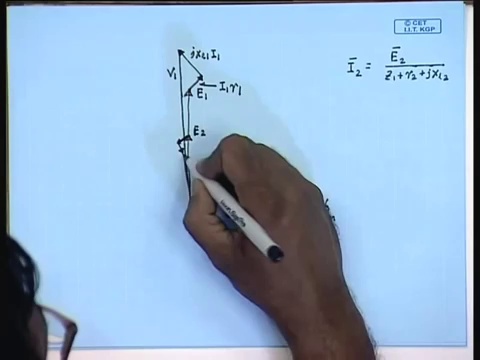 © CET
I.I.T. KGP
jx_{l1} I_1
V_1
E_1
I_1 r_1
E_2
\bar{I}_2 = \bar{E}_2 / (z_1 + r_2 + jx_{l2})